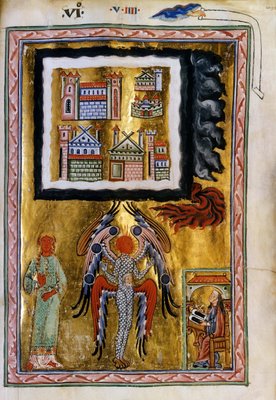 vi
v iiii